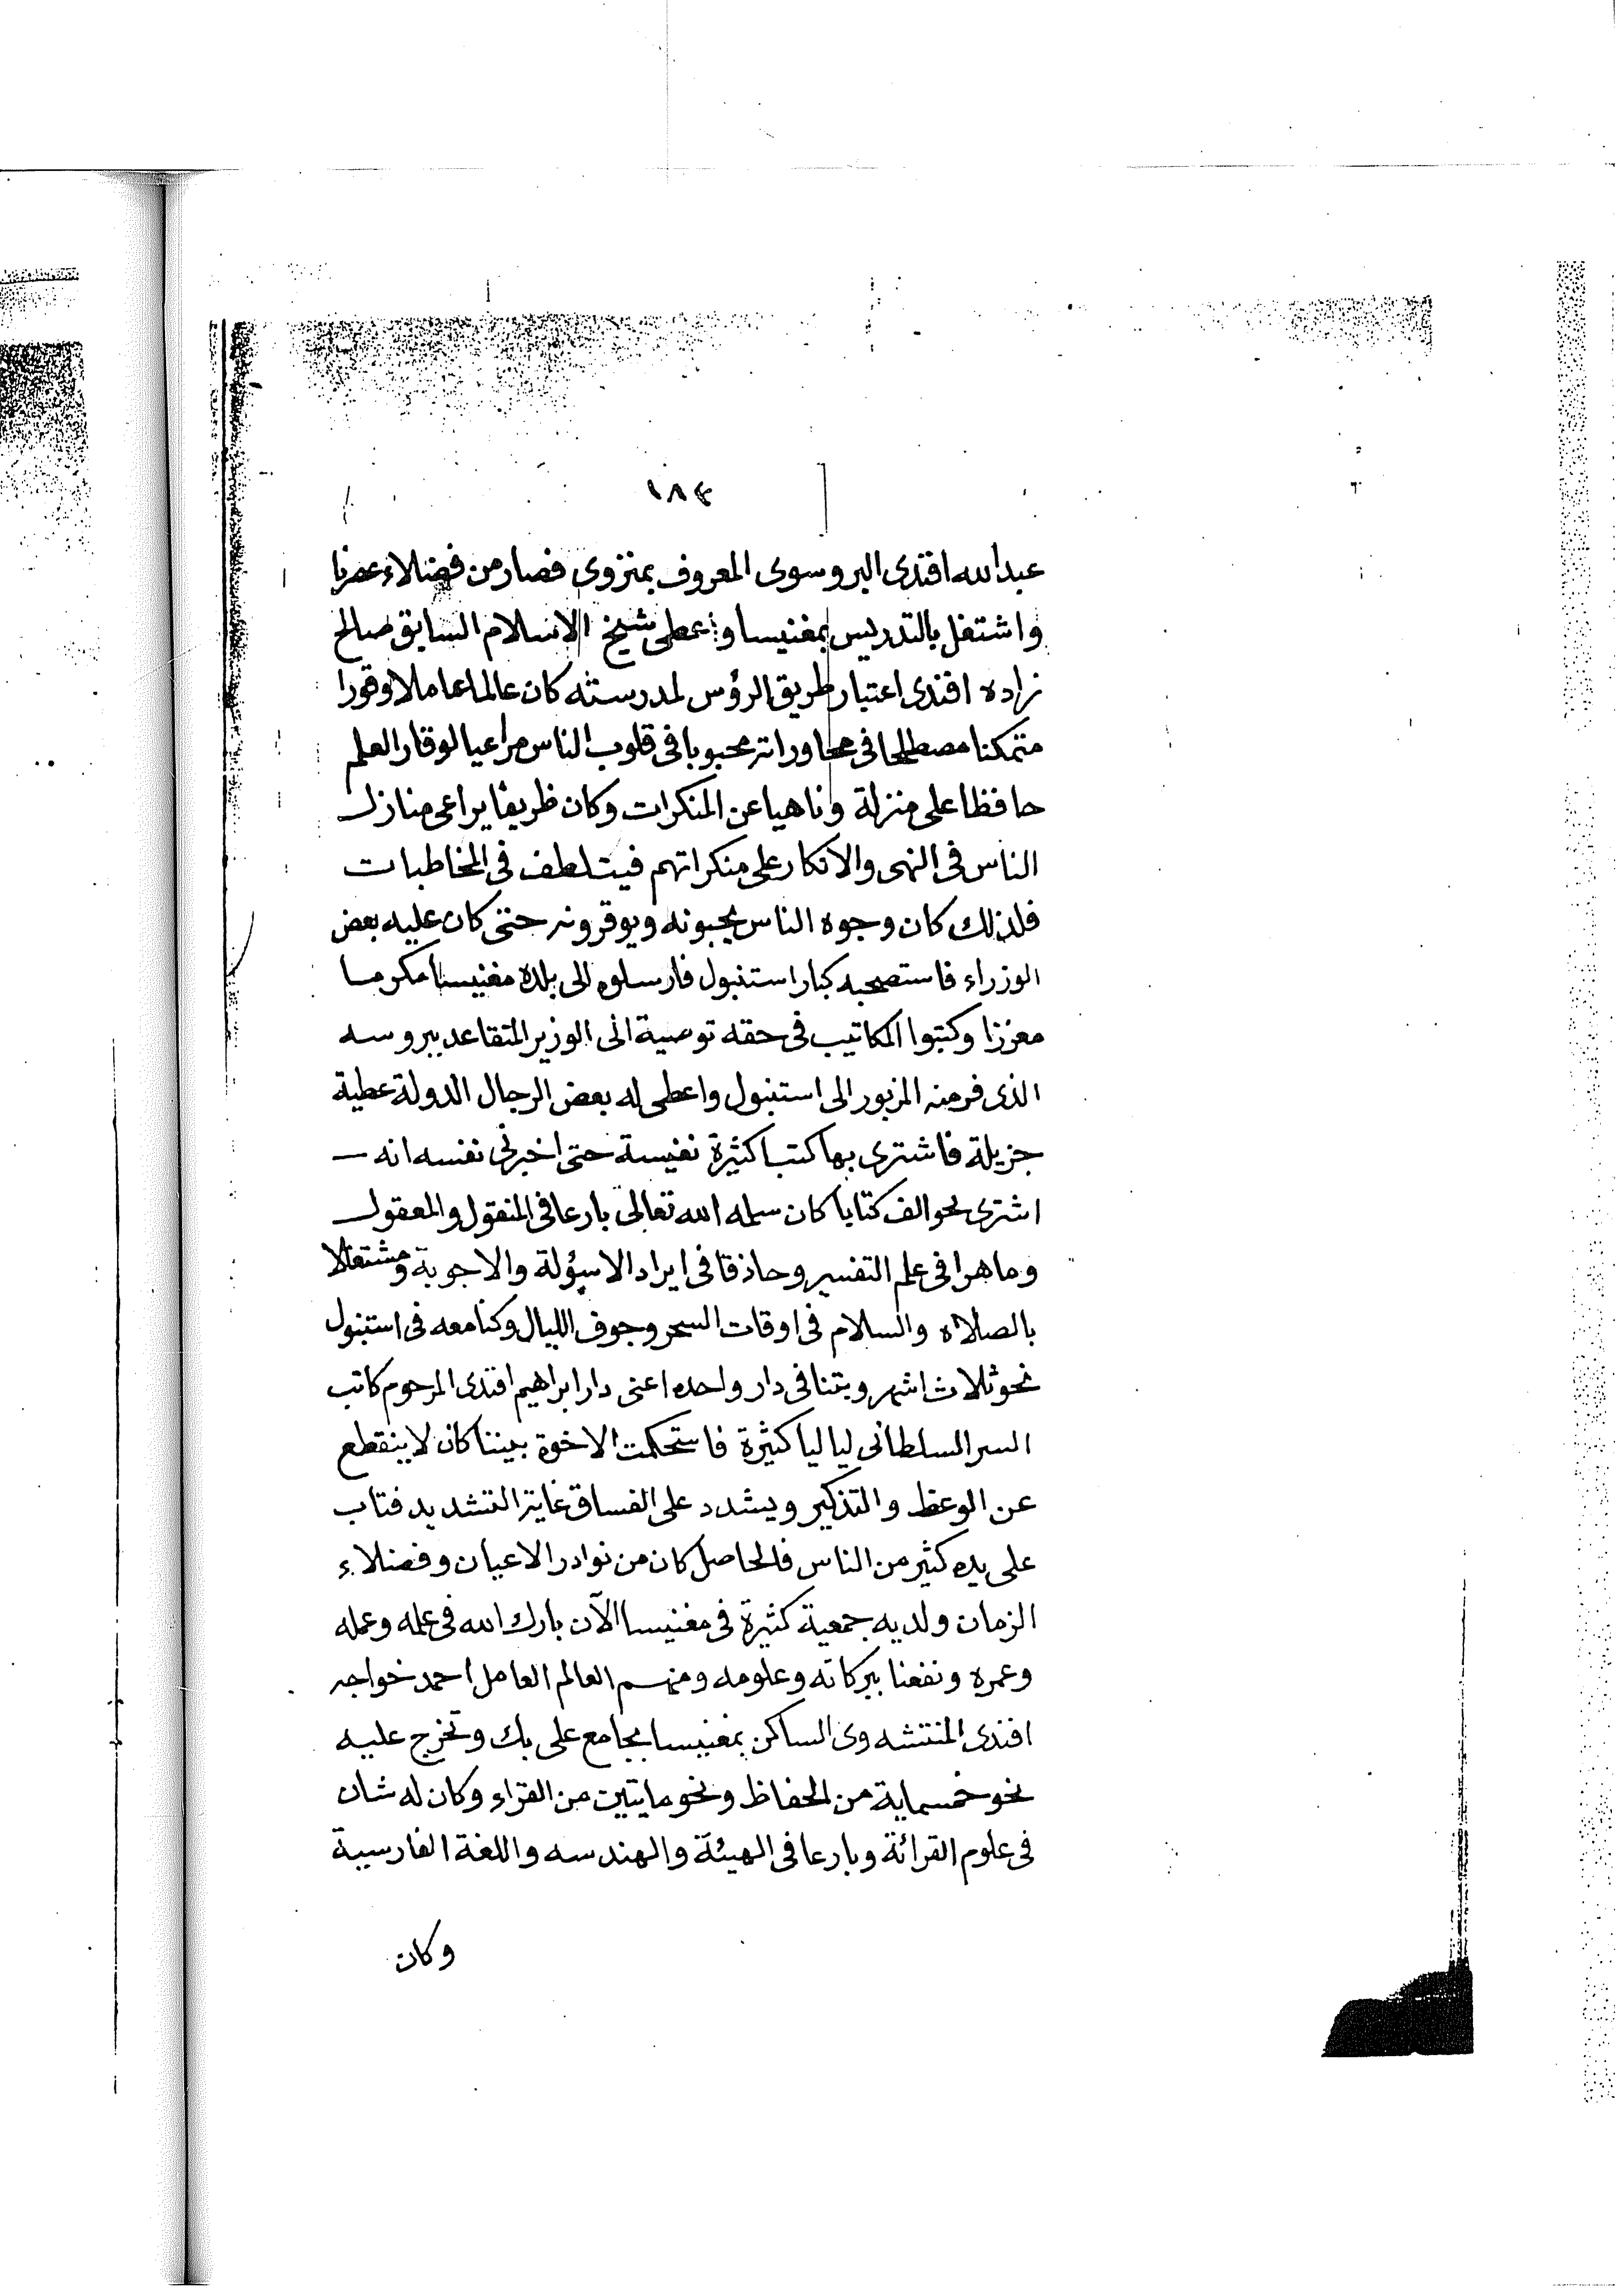 ١٨٤
عبد الله افندى البروسوى المعروف بمنزوى فصار من فضلاء عصرنا
واشتغل بالتدريس بمغنيسا واعطى شيخ الاسلام السابق صالح
زاده افندى اعتبار طريق الرؤس لمدرسته كان عالما عاملا وقورا
متمكنا مصطلحا فى محاوراته محبوبا فى قلوب الناس مراعيا لوقار العلم
حافظا على منزلة وناهيا عن المنكرات وكان ظريفا يراعى منازل
الناس فى النهى والانكار على منكراتهم فيتلطف فى المخاطبات
فلذلك كان وجوه الناس يحبونه ويوقرونه حتى كان عليه بعض
الوزراء فاستصحبه كبار استنبول فارسلوه الى بلده مغنيسا مكرما
معززا وكتبوا المكاتيب فى حقه توصية الى الوزير المتقاعد ببروسه
الذى فر منه المزبور الى استنبول واعطى له بعض الرجال الدولة عطية
جزيلة فاشترى بها كتبا كثيرة نفيسة حتى اخبرنى نفسه انه
اشترى نحو الف كتابا كان سلمه الله تعالى بارعا فى المنقول والمعقول
وماهرا فى علم التفسير وحاذقا فى ايراد الاسؤلة والاجوبة ومشتغلا
بالصلاه والسلام فى اوقات السحر وجوف الليال وكنا معه فى استنبول
نحو ثلاث اشهر وبتنا فى دار واحده اعنى دار ابراهيم افندى المرحوم كاتب
السر السلطانى ليا ليا كثيرة فاستحكمت الاخوة بيننا كان لا ينقطع
عن الوعظ والتذكير ويشدد على الفساق غاية التشديد فتاب
على يده كثير من الناس فالحاصل كان من نوادر الاعيان وفضلاء
الزمان ولديه جمعية كثيرة فى مغنيسا الآن بارك الله فى علمه وعمله
وعمره ونفعنا ببركاته وعلومه ومنهم العالم العامل احمد خواجه
افندى المنتشه وى الساكن بمغنيسا بجامع على بك وتخرج عليه
نحو خمسماية من الحفاظ ونحو مايتين من القراء وكان له شان
فى علوم القرائة وبارعا فى الهيئة والهندسه واللغة الفارسية
وكان